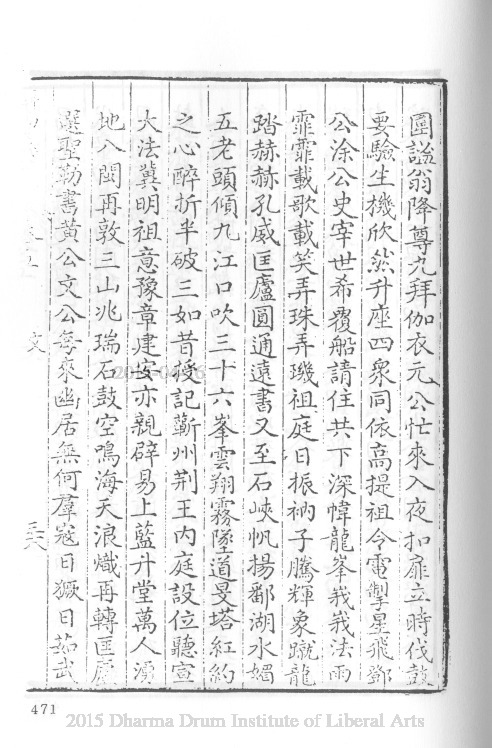 圍謚翁降尊九拜伽衣元公忙來入夜扣扉立時伐鼓
要驗生機欣然升座四衆同依高提祖令電掣星飛鄧
公涂公史宰世希覆船請住共下深幃龍峯我我法雨
霏霏載歌載笑弄珠弄璣祖庭日振衲子騰輝象蹴龍
踏赫赫孔威匡廬圓通遠書又至石峽帆揚鄱湖水媚
五老頭傾九江口吹三十六峯雲翔霧墜道旻塔紅約
之心醉折半破三如昔授記蘄州荆王內庭設位聽宣
大法冀明祖意豫章建安亦親辟易上藍升堂萬人湧
地入閩再敦三山兆瑞石鼓空鳴海天浪熾再轉匡廬
選聖勒書黃公文公每來幽居無何羣寇日獗日茹武
文
三六
471
2015 Dharma Drum Institute of Liberal Arts